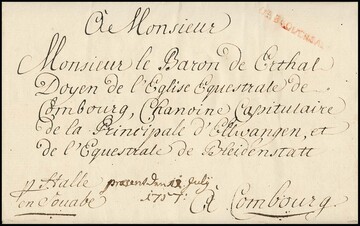 A Monsieur
Monsieur le Baron de Erthal
Doyen de l'Eglise Equestrale de
Combourg, Chanoine Capitulaire
de la Principale d'Ellwangen, et
de l'Equestrale de Bleidenstatt
p Halle
en Souabe
present den 12 July
1757.
A Combourg.